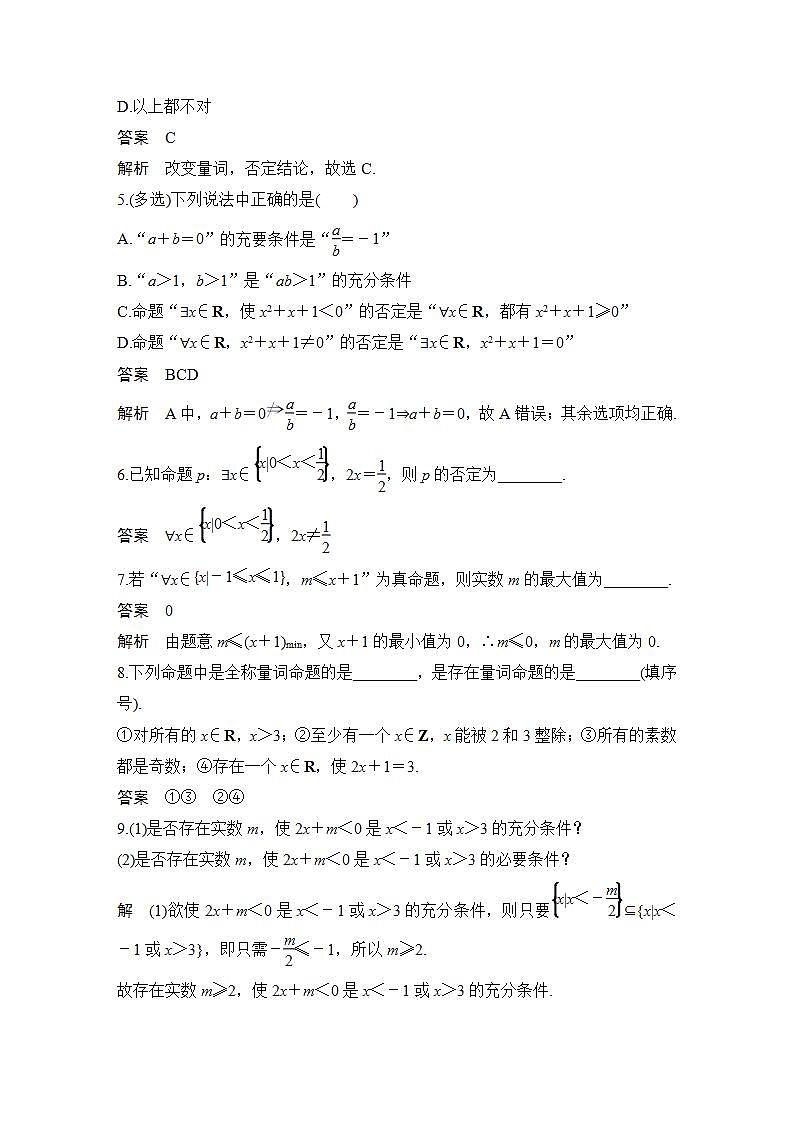 D.以上都不对
答案　C
解析　改变量词，否定结论，故选 C.
5.(多选)下列说法中正确的是(　　)
A.“a＋b＝0”的充要条件是“a/b＝－1”
B.“a＞1，b＞1”是“ab＞1”的充分条件
C.命题“∃x∈R，使 x²＋x＋1＜0”的否定是“∀x∈R，都有 x²＋x＋1≥0”
D.命题“∀x∈R，x²＋x＋1≠0”的否定是“∃x∈R，x²＋x＋1＝0”
答案　BCD
解析　A 中，a＋b＝0⇏a/b＝－1，a/b＝－1⇒a＋b＝0，故 A 错误；其余选项均正确.
6.已知命题 p：∃x∈{x|0＜x＜1/2}，2x＝1/2，则 p 的否定为________.
答案　∀x∈{x|0＜x＜1/2}，2x≠1/2
7.若“∀x∈{x|－1≤x≤1}，m≤x＋1”为真命题，则实数 m 的最大值为________.
答案　0
解析　由题意 m≤(x＋1)min，又 x＋1 的最小值为 0，∴m≤0，m 的最大值为 0.
8.下列命题中是全称量词命题的是________，是存在量词命题的是________(填序
号).
①对所有的 x∈R，x＞3；②至少有一个 x∈Z，x 能被 2 和 3 整除；③所有的素数
都是奇数；④存在一个 x∈R，使 2x＋1＝3.
答案　①③　②④
9.(1)是否存在实数 m，使 2x＋m＜0 是 x＜－1 或 x＞3 的充分条件？
(2)是否存在实数 m，使 2x＋m＜0 是 x＜－1 或 x＞3 的必要条件？
解　(1)欲使 2x＋m＜0 是 x＜－1 或 x＞3 的充分条件，则只要{x|x＜－m/2}⊆{x|x＜
－1 或 x＞3}，即只需－m/2≤－1，所以 m≥2.
故存在实数 m≥2，使 2x＋m＜0 是 x＜－1 或 x＞3 的充分条件.